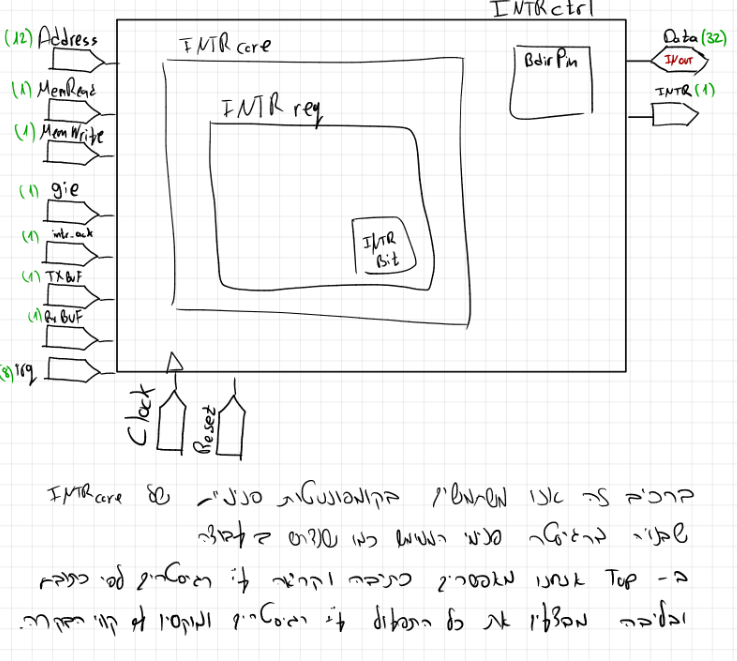 INTR ctrl
(12) Address
(1) MemRead
(1) MemWrite
(1) gie
(1) intr_ack
(1) TXBUF
(1) RxBUF
(8) irq
Clock
Reset
INTR core
INTR req
INTR
Bit
BdirPin
Data (32)
INout
INTR (1)
ברכיב זה אנו משתמשים בקומפוננטות פנימיות של INTR core
שבנויה ברגיסטר פנימי הממומש כמו שנדרש בעבודה
ב - Top אנחנו מאפשרים כתיבה וקריאה ע"י רגיסטרים לפי כתובת
ובליבה מבצעים את כל התפעול ע"י רגיסטרים ומוקסים לפי קווי הבקרה.